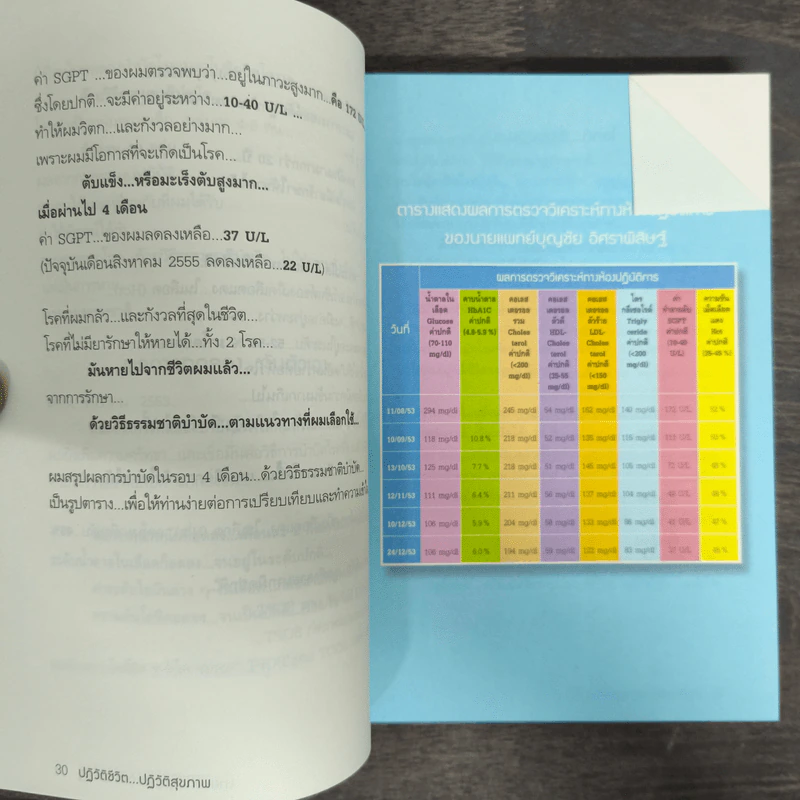 ค่า SGPT ...ของผมตรวจพบว่า...อยู่ในภาวะสูงมาก...คือ 172
ซึ่งโดยปกติ...จะมีค่าอยู่ระหว่าง...10-40 U/L ...
ทำให้ผมวิตก...และกังวลอย่างมาก...
เพราะผมมีโอกาสที่จะเกิดเป็นโรค...
ตับแข็ง...หรือมะเร็งตับสูงมาก...
เมื่อผ่านไป 4 เดือน
ค่า SGPT...ของผมลดลงเหลือ...37 U/L
(ปัจจุบันเดือนสิงหาคม 2555 ลดลงเหลือ...22 U/L)
โรคที่ผมกลัว...และกังวลที่สุดในชีวิต...
โรคที่ไม่มียารักษาให้หายได้...ทั้ง 2 โรค...
มันหายไปจากชีวิตผมแล้ว...
จากการรักษา...
ด้วยวิธีธรรมชาติบำบัด...ตามแนวทางที่ผมเลือกใช้...
ผมสรุปผลการบำบัดในรอบ 4 เดือน...ด้วยวิธีธรรมชาติบำบัด...
เป็นรูปตาราง...เพื่อให้ท่านง่ายต่อการเปรียบเทียบและทำความเข้า
30 ปฏิวัติชีวิต...ปฏิวัติสุขภาพ
ตารางแสดงผลการตรวจวิเคราะห์ทางห้
ของนายแพทย์บุญชัย อิศราพิสิษฐ์
ผลการตรวจวิเคราะห์ทางห้องปฏิบัติการ
วันที่ น้ำตาลในเลือด Glucose ค่าปกติ (70-110 mg/dl) คาบน้ำตาล HbA1C ค่าปกติ (4.8-5.9 %) คอเลสเตอรอลรวม Cholesterol ค่าปกติ (<200 mg/dl) คอเลสเตอรอลตัวดี HDL-Cholesterol ค่าปกติ (35-55 mg/dl) คอเลสเตอรอลตัวร้าย LDL-Cholesterol ค่าปกติ (<150 mg/dl) ไตรกลีเซอไรด์ Triglyceride ค่าปกติ (<200 mg/dl) ค่าทำงานตับ SGPT ค่าปกติ (10-40 U/L) ความข้นเม็ดเลือดแดง Hct ค่าปกติ
11/08/53 294 mg/dl - 245 mg/dl 54 mg/dl 162 mg/dl 143 mg/dl 172 U/L 52 %
10/09/53 118 mg/dl 10.8 % 218 mg/dl 52 mg/dl 135 mg/dl 115 mg/dl 113 U/L 50 %
13/10/53 125 mg/dl 7.7 % 218 mg/dl 51 mg/dl 146 mg/dl 105 mg/dl 72 U/L
12/11/53 111 mg/dl 6.4 % 211 mg/dl mg/dl 137 mg/dl 104 mg/dl U/L
10/12/53 106 mg/dl 5.9 % 204 mg/dl mg/dl mg/dl mg/dl U/L
24/12/53 106 mg/dl 6.0 % 194 mg/dl 59 mg/dl mg/dl mg/dl 37 U/L